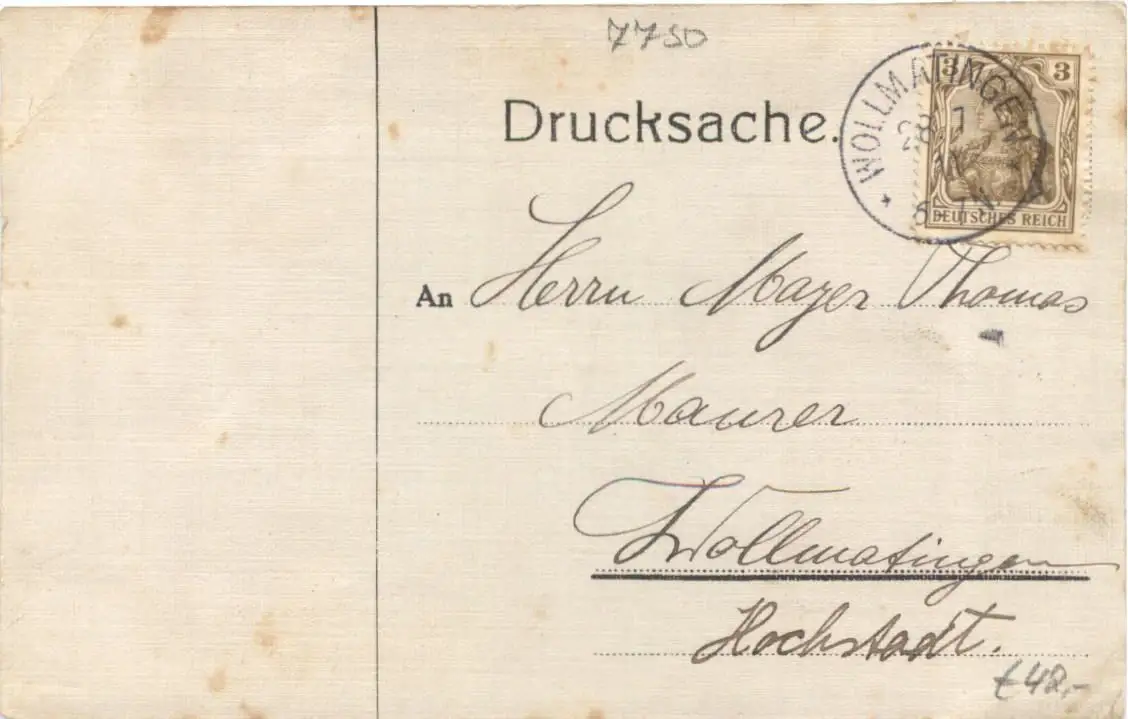 7750
Drucksache.
3 3
DEUTSCHES REICH
* WOLLMATINGEN
28 7
11
6-7N
An Herrn Mayer Thomas
Maurer
Wollmatingen
Hochstadt.
€42,-